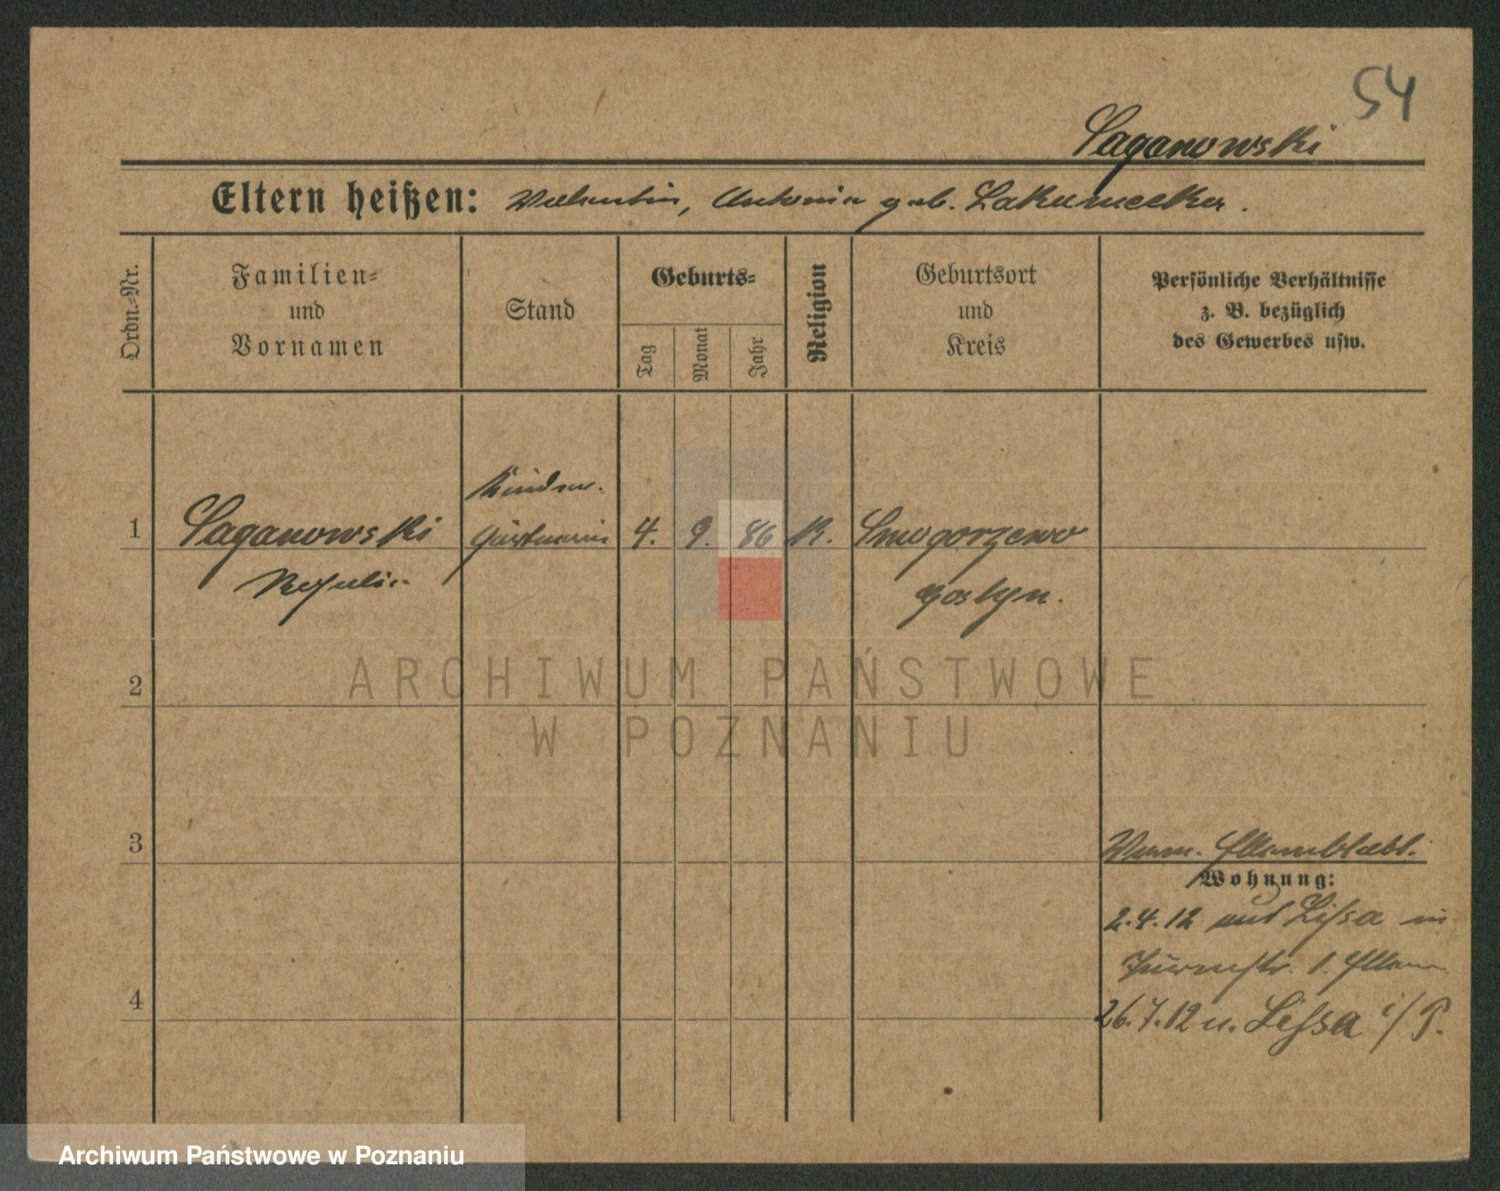 54
Saganowski
Eltern heißen: Valentin, Antonie geb.
Ordn.-Nr.
Familien-
und
Vornamen
Stand
Geburts-
Tag
Monat
Jahr
Religion
Geburtsort
und
Kreis
Persönliche Verhältnisse
z. B. bezüglich
des Gewerbes usw.
Kinder-
1 Saganowski gärtnerin 4. 9. 86 K. Smogorzewo
Gostyn.
ARCHIWUM PAŃSTWOWE
2
W POZNANIU
3
Wohnung:
2.4.12 aus Lissa in
1.
4
26.7.12 n. Lissa i/P.
Archiwum Państwowe w Poznaniu